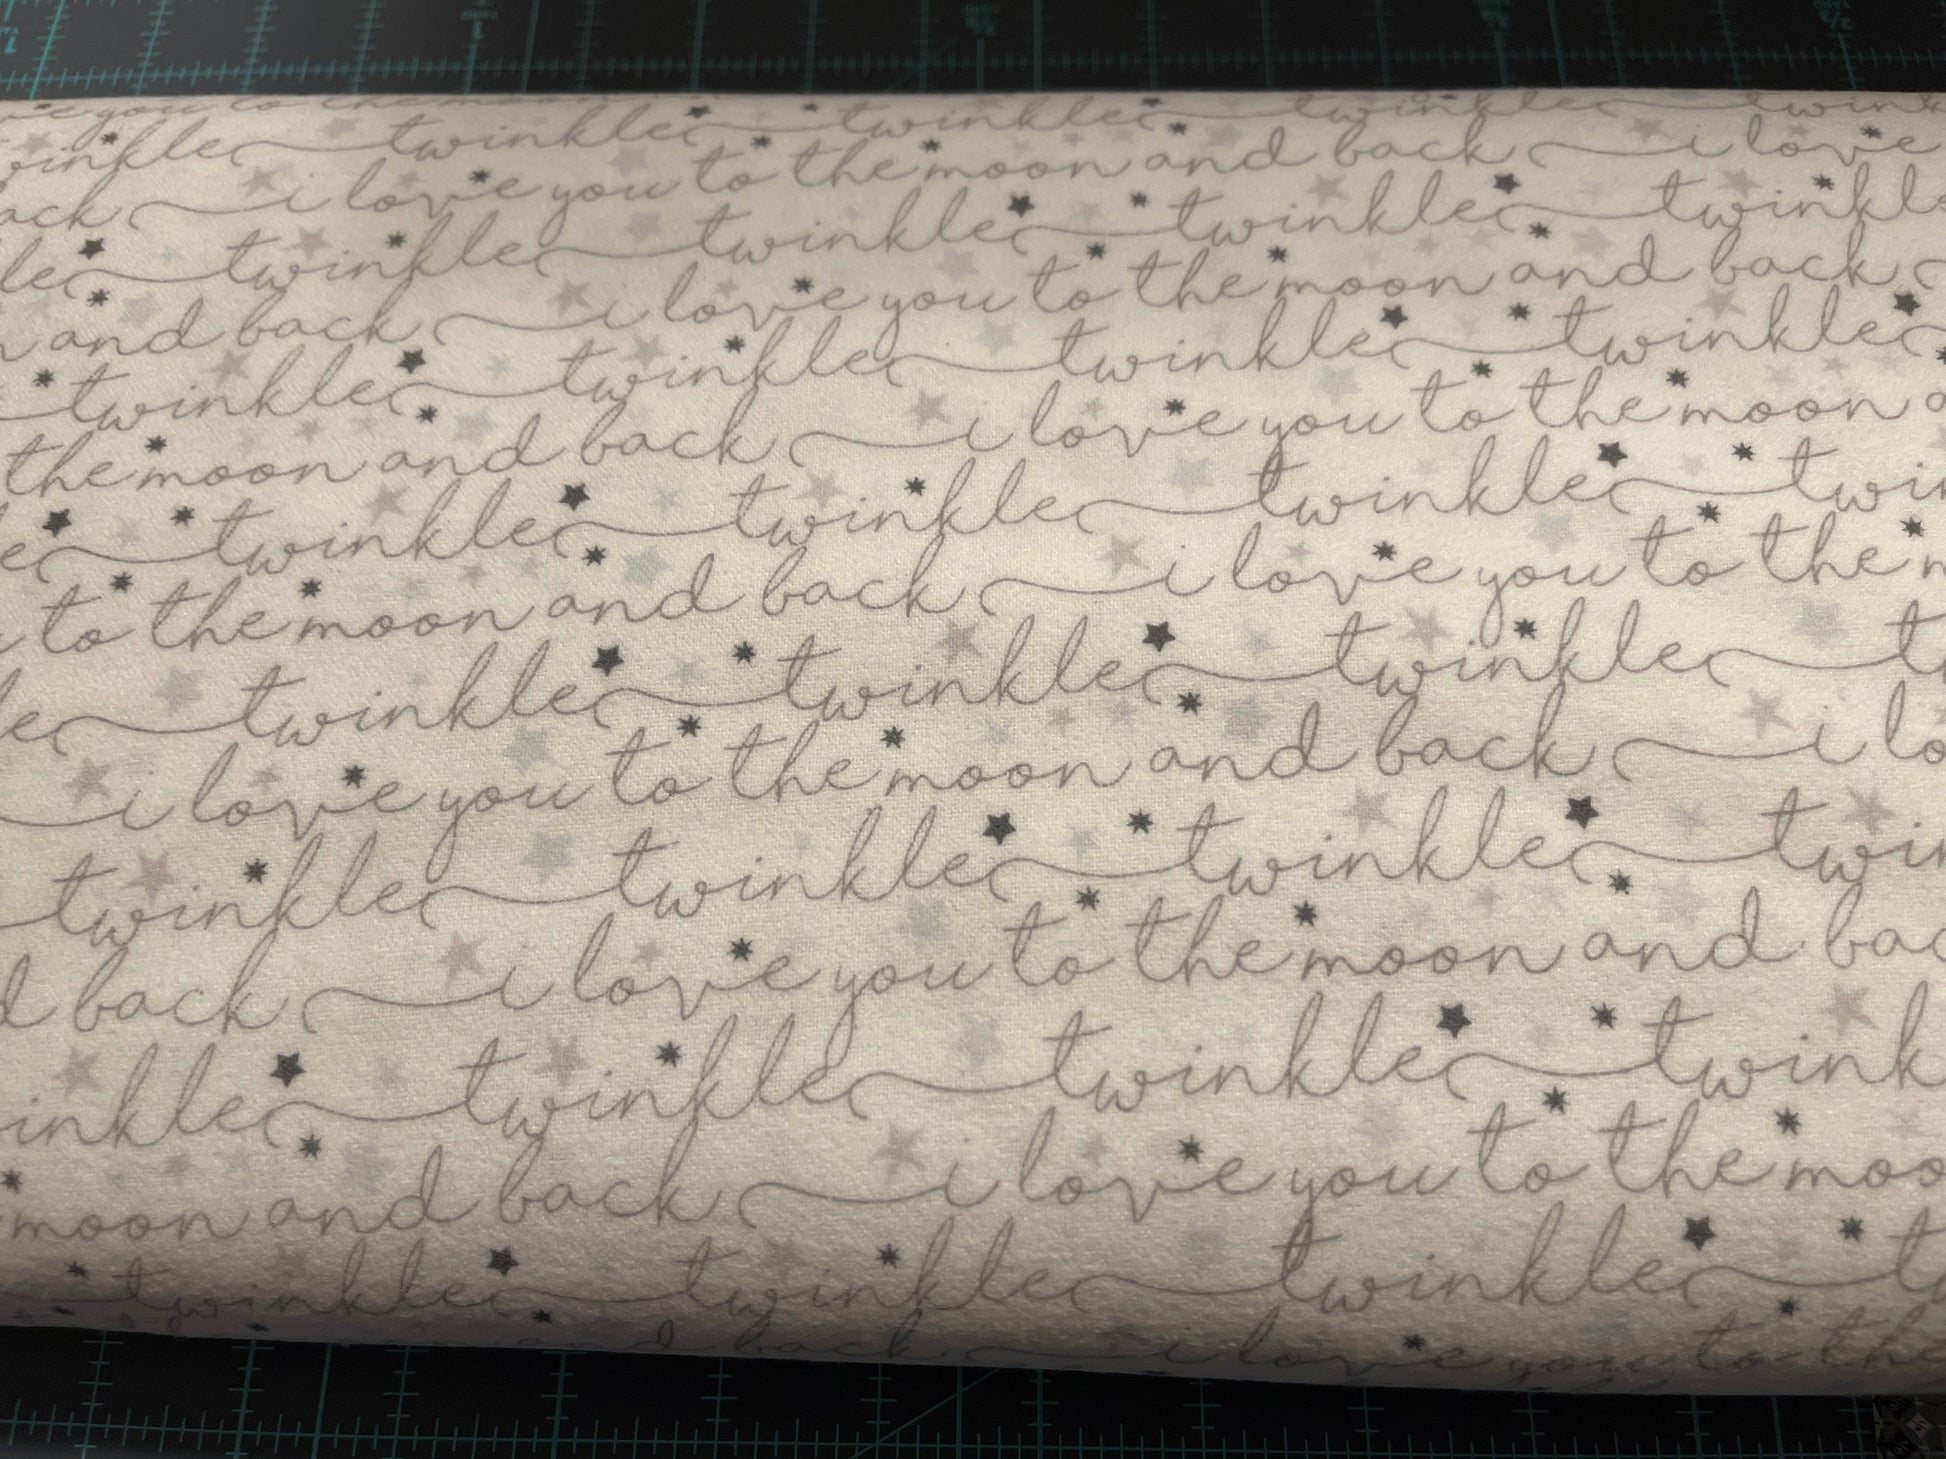 you to the moon
twinkle twinkle twinkle twinkle
back i love you to the moon and back i love
twinkle twinkle twinkle twinkle
and back i love you to the moon and back
twinkle twinkle twinkle twinkle
the moon and back i love you to the moon
twinkle twinkle twinkle
to the moon and back i love you to the
twinkle twinkle twinkle
i love you to the moon and back i
twinkle twinkle twinkle
back i love you to the moon and
twinkle twinkle
moon and back i love you to the
twinkle twinkle twinkle
back i love you to the